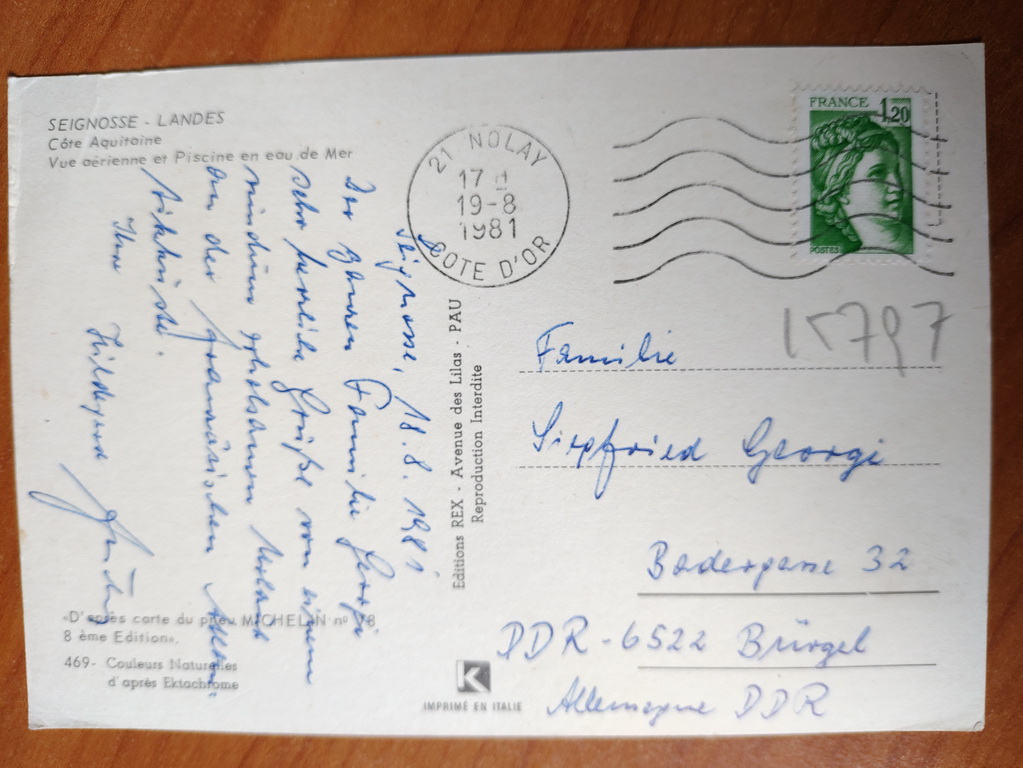 SEIGNOSSE - LANDES
Côte Aquitaine
Vue aérienne et Piscine en eau de Mer
21 NOLAY
17 H
19-8
1981
COTE D'OR
FRANCE 1,20
POSTES
K797
Seignosse, 18.8.1981
Der ganzen Familie Georgi
sehr herzliche Grüße von einem
erholsamen Urlaub
an der französischen Atlan-
tikküste.
Ihre Hildegard
Editions REX - Avenue des Lilas - PAU
Reproduction Interdite
Familie
Siegfried Georgi
Badergasse 32
DDR-6522 Bürgel
Allemagne DDR
«D'après carte du pneu MICHELIN nº 78
8 ème Edition».
469- Couleurs Naturelles
d'après Ektachrome
K
IMPRIMÉ EN ITALIE